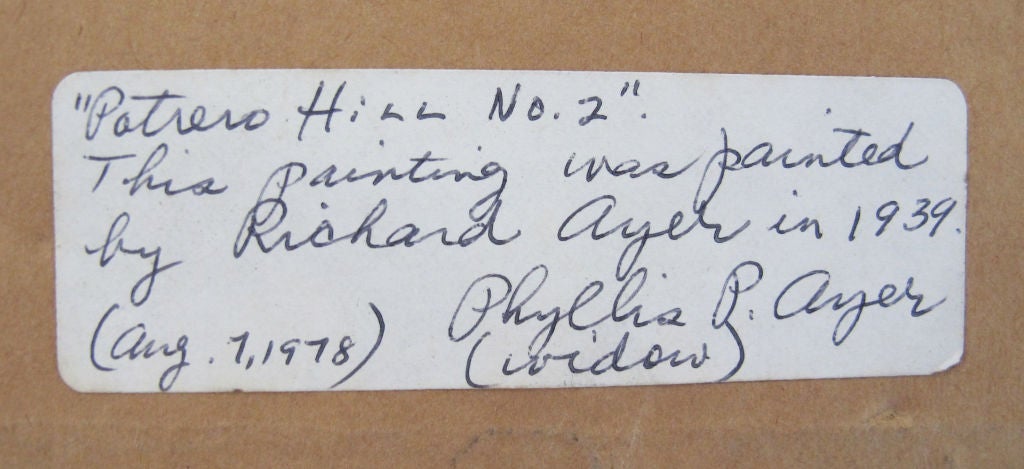 "Potrero Hill No. 2".
This painting was painted
by Richard Ayer in 1939.
Phyllis P. Ayer
(Aug. 7, 1978) (widow)